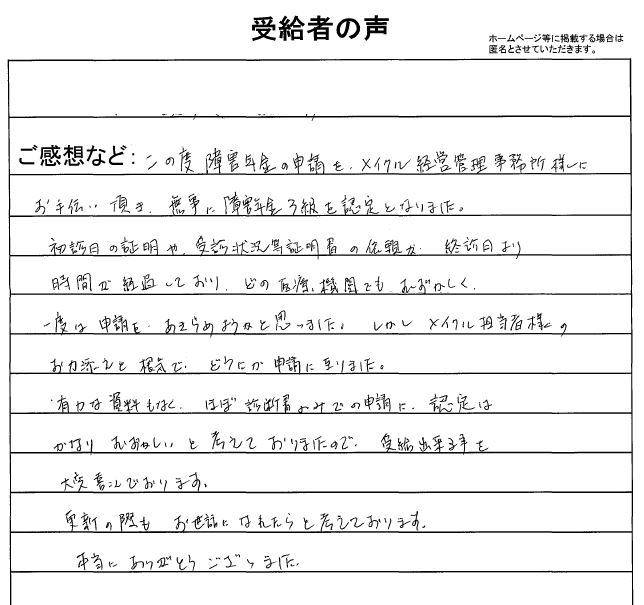 受給者の声
ホームページ等に掲載する場合は
匿名とさせていただきます。
ご感想など：この度 障害年金の申請を、メイクル経営管理事務所様に
お手伝い頂き、無事に障害年金3級を認定となりました。
初診日の証明や、受診状況等証明書の依頼が、終診日より
時間が経過しており、どの医療機関でもむずかしく、
一度は申請を、あきらめようかと思いました。しかしメイクル担当者様の
お力添えと根気で、どうにか申請に至りました。
有力な資料もなく、ほぼ診断書のみでの申請に、認定は
かなりむずかしいと考えておりましたので、受給出来る事を
大変喜んでおります。
更新の際もお世話になれたらと考えております。
本当にありがとうございました。